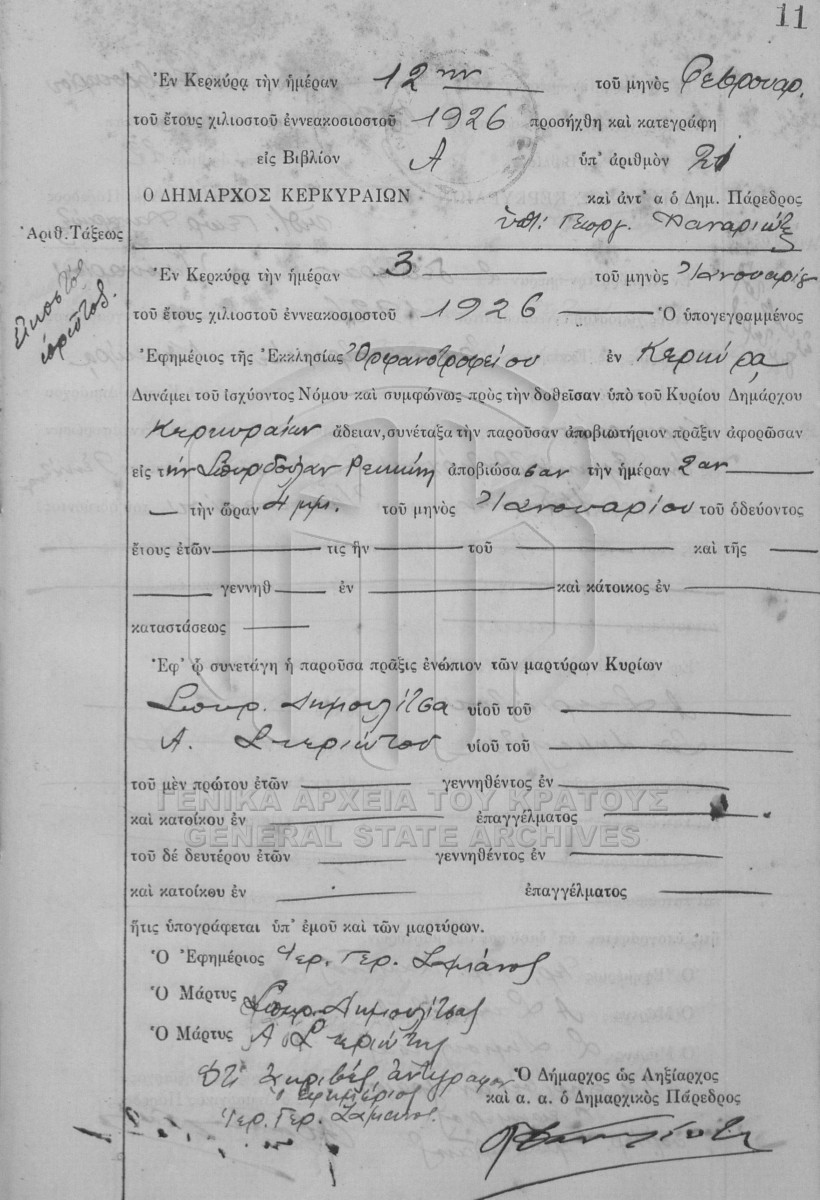 11
Ἐν Κερκύρᾳ τὴν ἡμέραν 12ην τοῦ μηνὸς Φεβρουαρ.
τοῦ ἔτους χιλιοστοῦ ἐννεακοσιοστοῦ 1926 προσήχθη καὶ κατεγράφη
εἰς Βιβλίον Α ὑπ' ἀριθμὸν 21
Ο ΔΗΜΑΡΧΟΣ ΚΕΡΚΥΡΑΙΩΝ καὶ ἀντ' α ὁ Δημ. Πάρεδρος
Γεωργ.
Ἀριθ. Τάξεως
Ἐν Κερκύρᾳ τὴν ἡμέραν 3 τοῦ μηνὸς Ἰανουαρίου
εἰκοστὸς
τοῦ ἔτους χιλιοστοῦ ἐννεακοσιοστοῦ 1926 Ὁ ὑπογεγραμμένος
Ἐφημέριος τῆς Ἐκκλησίας Ὀρφανοτροφείου ἐν Κερκύρᾳ
Δυνάμει τοῦ ἰσχύοντος Νόμου καὶ συμφώνως πρὸς τὴν δοθεῖσαν ὑπὸ τοῦ Κυρίου Δημάρχου
Κερκυραίων ἄδειαν, συνέταξα τὴν παροῦσαν ἀποβιωτήριον πρᾶξιν ἀφορῶσαν
εἰς τὴν Σπυριδούλαν ἀποβιώσασαν τὴν ἡμέραν 2αν
τὴν ὥραν 4 μμ. τοῦ μηνὸς Ἰανουαρίου τοῦ ὁδεύοντος
ἔτους ἐτῶν τις ἦν τοῦ καὶ τῆς
γεννηθ ἐν καὶ κάτοικος ἐν
καταστάσεως
Ἐφ' ᾧ συνετάγη ἡ παροῦσα πρᾶξις ἐνώπιον τῶν μαρτύρων Κυρίων
Σπυρ. Δημουλίτσα υἱοῦ τοῦ
Α. Σκεριώτου υἱοῦ τοῦ
τοῦ μὲν πρώτου ἐτῶν γεννηθέντος ἐν
ΓΕΝΙΚΑ ΑΡΧΕΙΑ ΤΟΥ ΚΡΑΤΟΥΣ
καὶ κατοίκου ἐν ἐπαγγέλματος
GENERAL STATE ARCHIVES
τοῦ δὲ δευτέρου ἐτῶν γεννηθέντος ἐν
καὶ κατοίκου ἐν ἐπαγγέλματος
ἥτις ὑπογράφεται ὑπ' ἐμοῦ καὶ τῶν μαρτύρων.
Ὁ Ἐφημέριος Ἱερ. Γερ. Σαμιάνος
Ὁ Μάρτυς Σπυρ. Δημουλίτσας
Ὁ Μάρτυς Α Σκεριώτης
Ὅτι ἀκριβὲς ἀντίγραφον Ὁ Δήμαρχος ὡς Ληξίαρχος
ὁ Ἐφημέριος καὶ α. α. ὁ Δημαρχικὸς Πάρεδρος
Ἱερ. Γερ. Σαμιάνος